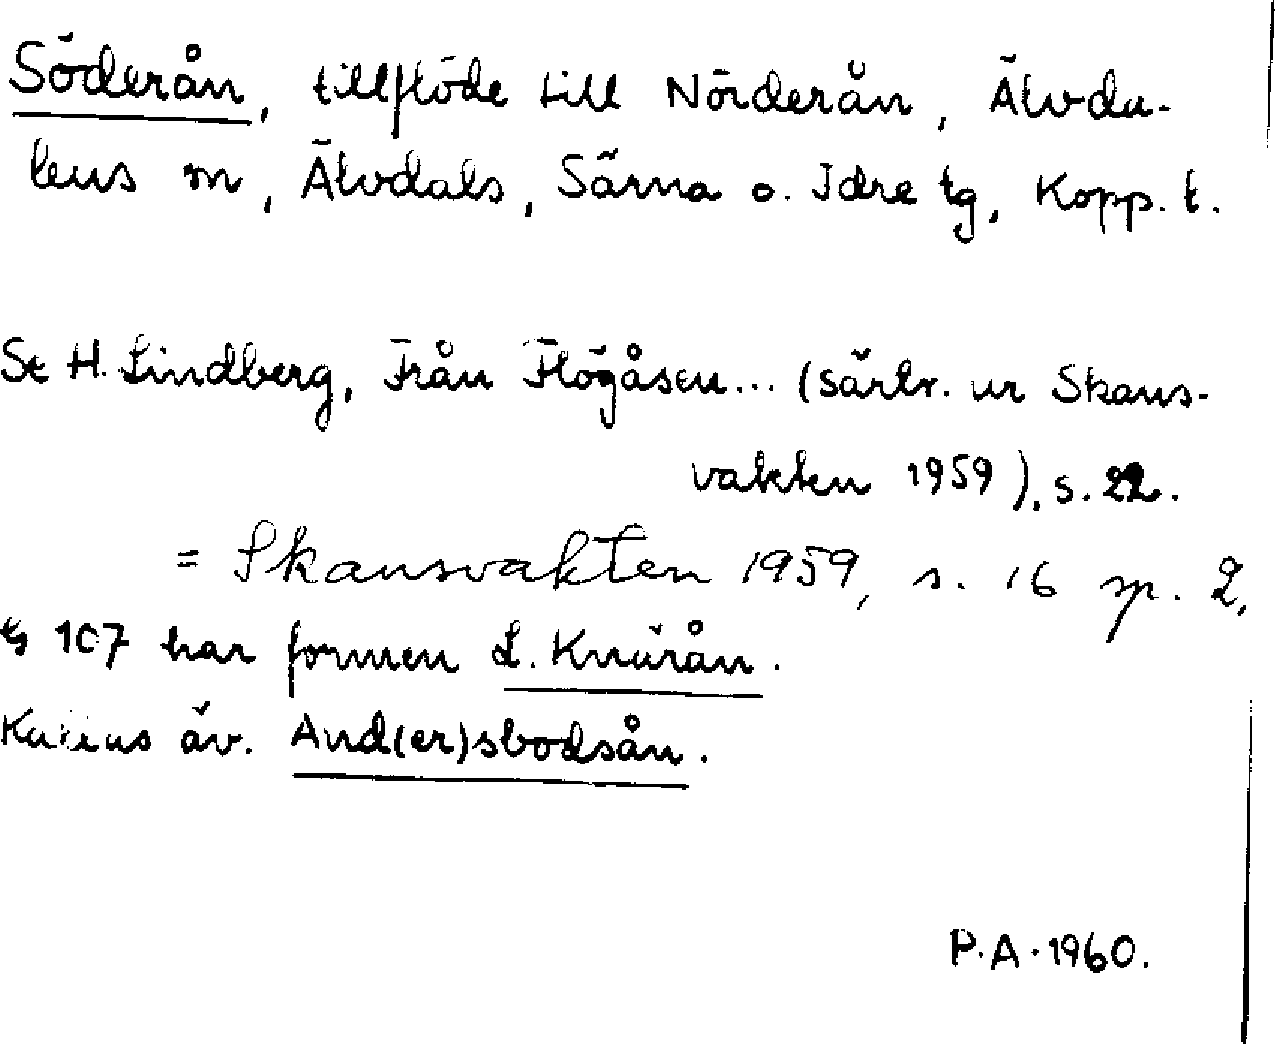 Söderån, tillflöde till Nörderån, Älvda-
lens m, Älvdals, Särna o. Idre tg, Kopp. l.
St H. Lindberg, Från Flögåsen... (särtr. ur Skans-
vakten 1959), s. 22.
= Skansvakten 1959, s. 16 sp. 2,
§ 107 har formen L. Knärån.
Kallas äv. And(er)sbodsån.
P.A. 1960.